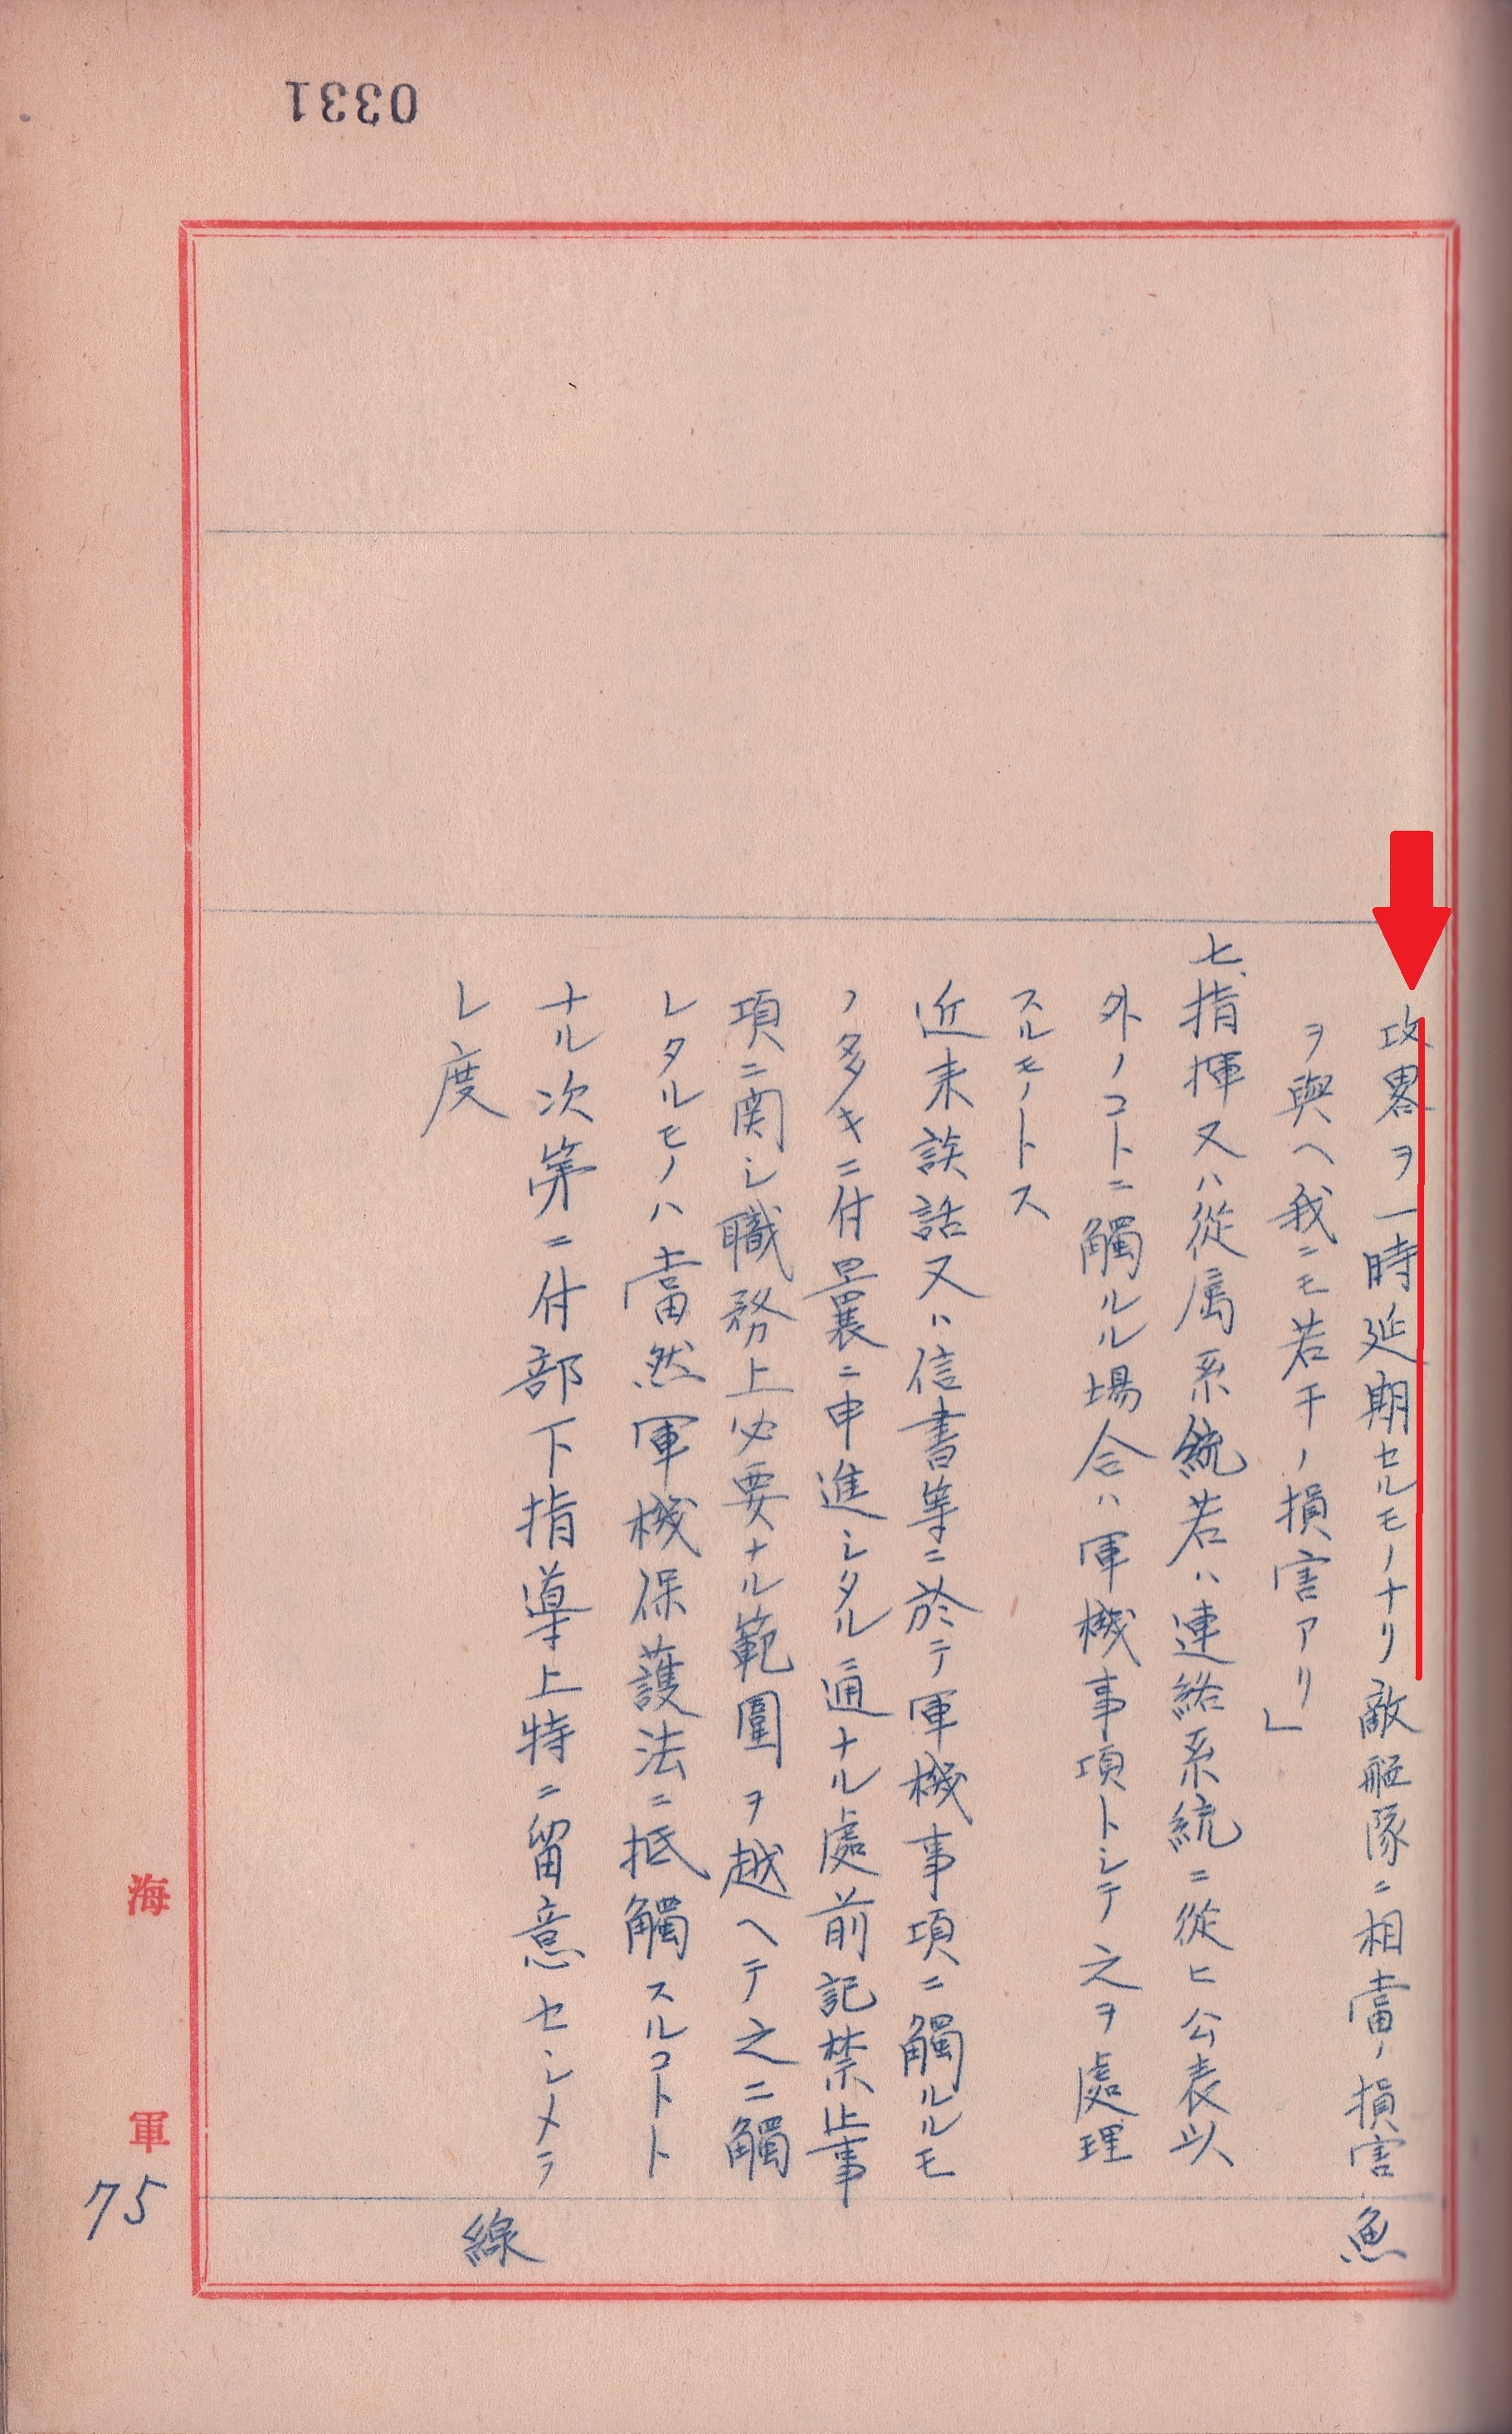 0331
攻畧ヲ一時延期セルモノナリ敵艦隊ニ相當ノ損害
ヲ與ヘ我ニモ若干ノ損害アリ」
七、指揮又ハ從属系統若ハ連絡系統ニ從ヒ公表以
外ノコトニ觸ルル場合ハ軍機事項トシテ之ヲ處理
スルモノトス
近来談話又ハ信書等ニ於テ軍機事項ニ觸ルルモ
ノ多キニ付曩ニ申進シタル通ナル處前記禁止事
項ニ関シ職務上必要ナル範圍ヲ越ヘテ之ニ觸
レタルモノハ當然軍機保護法ニ抵觸スルコトト
ナル次第ニ付部下指導上特ニ留意セシメラ
レ度
線
海軍
75